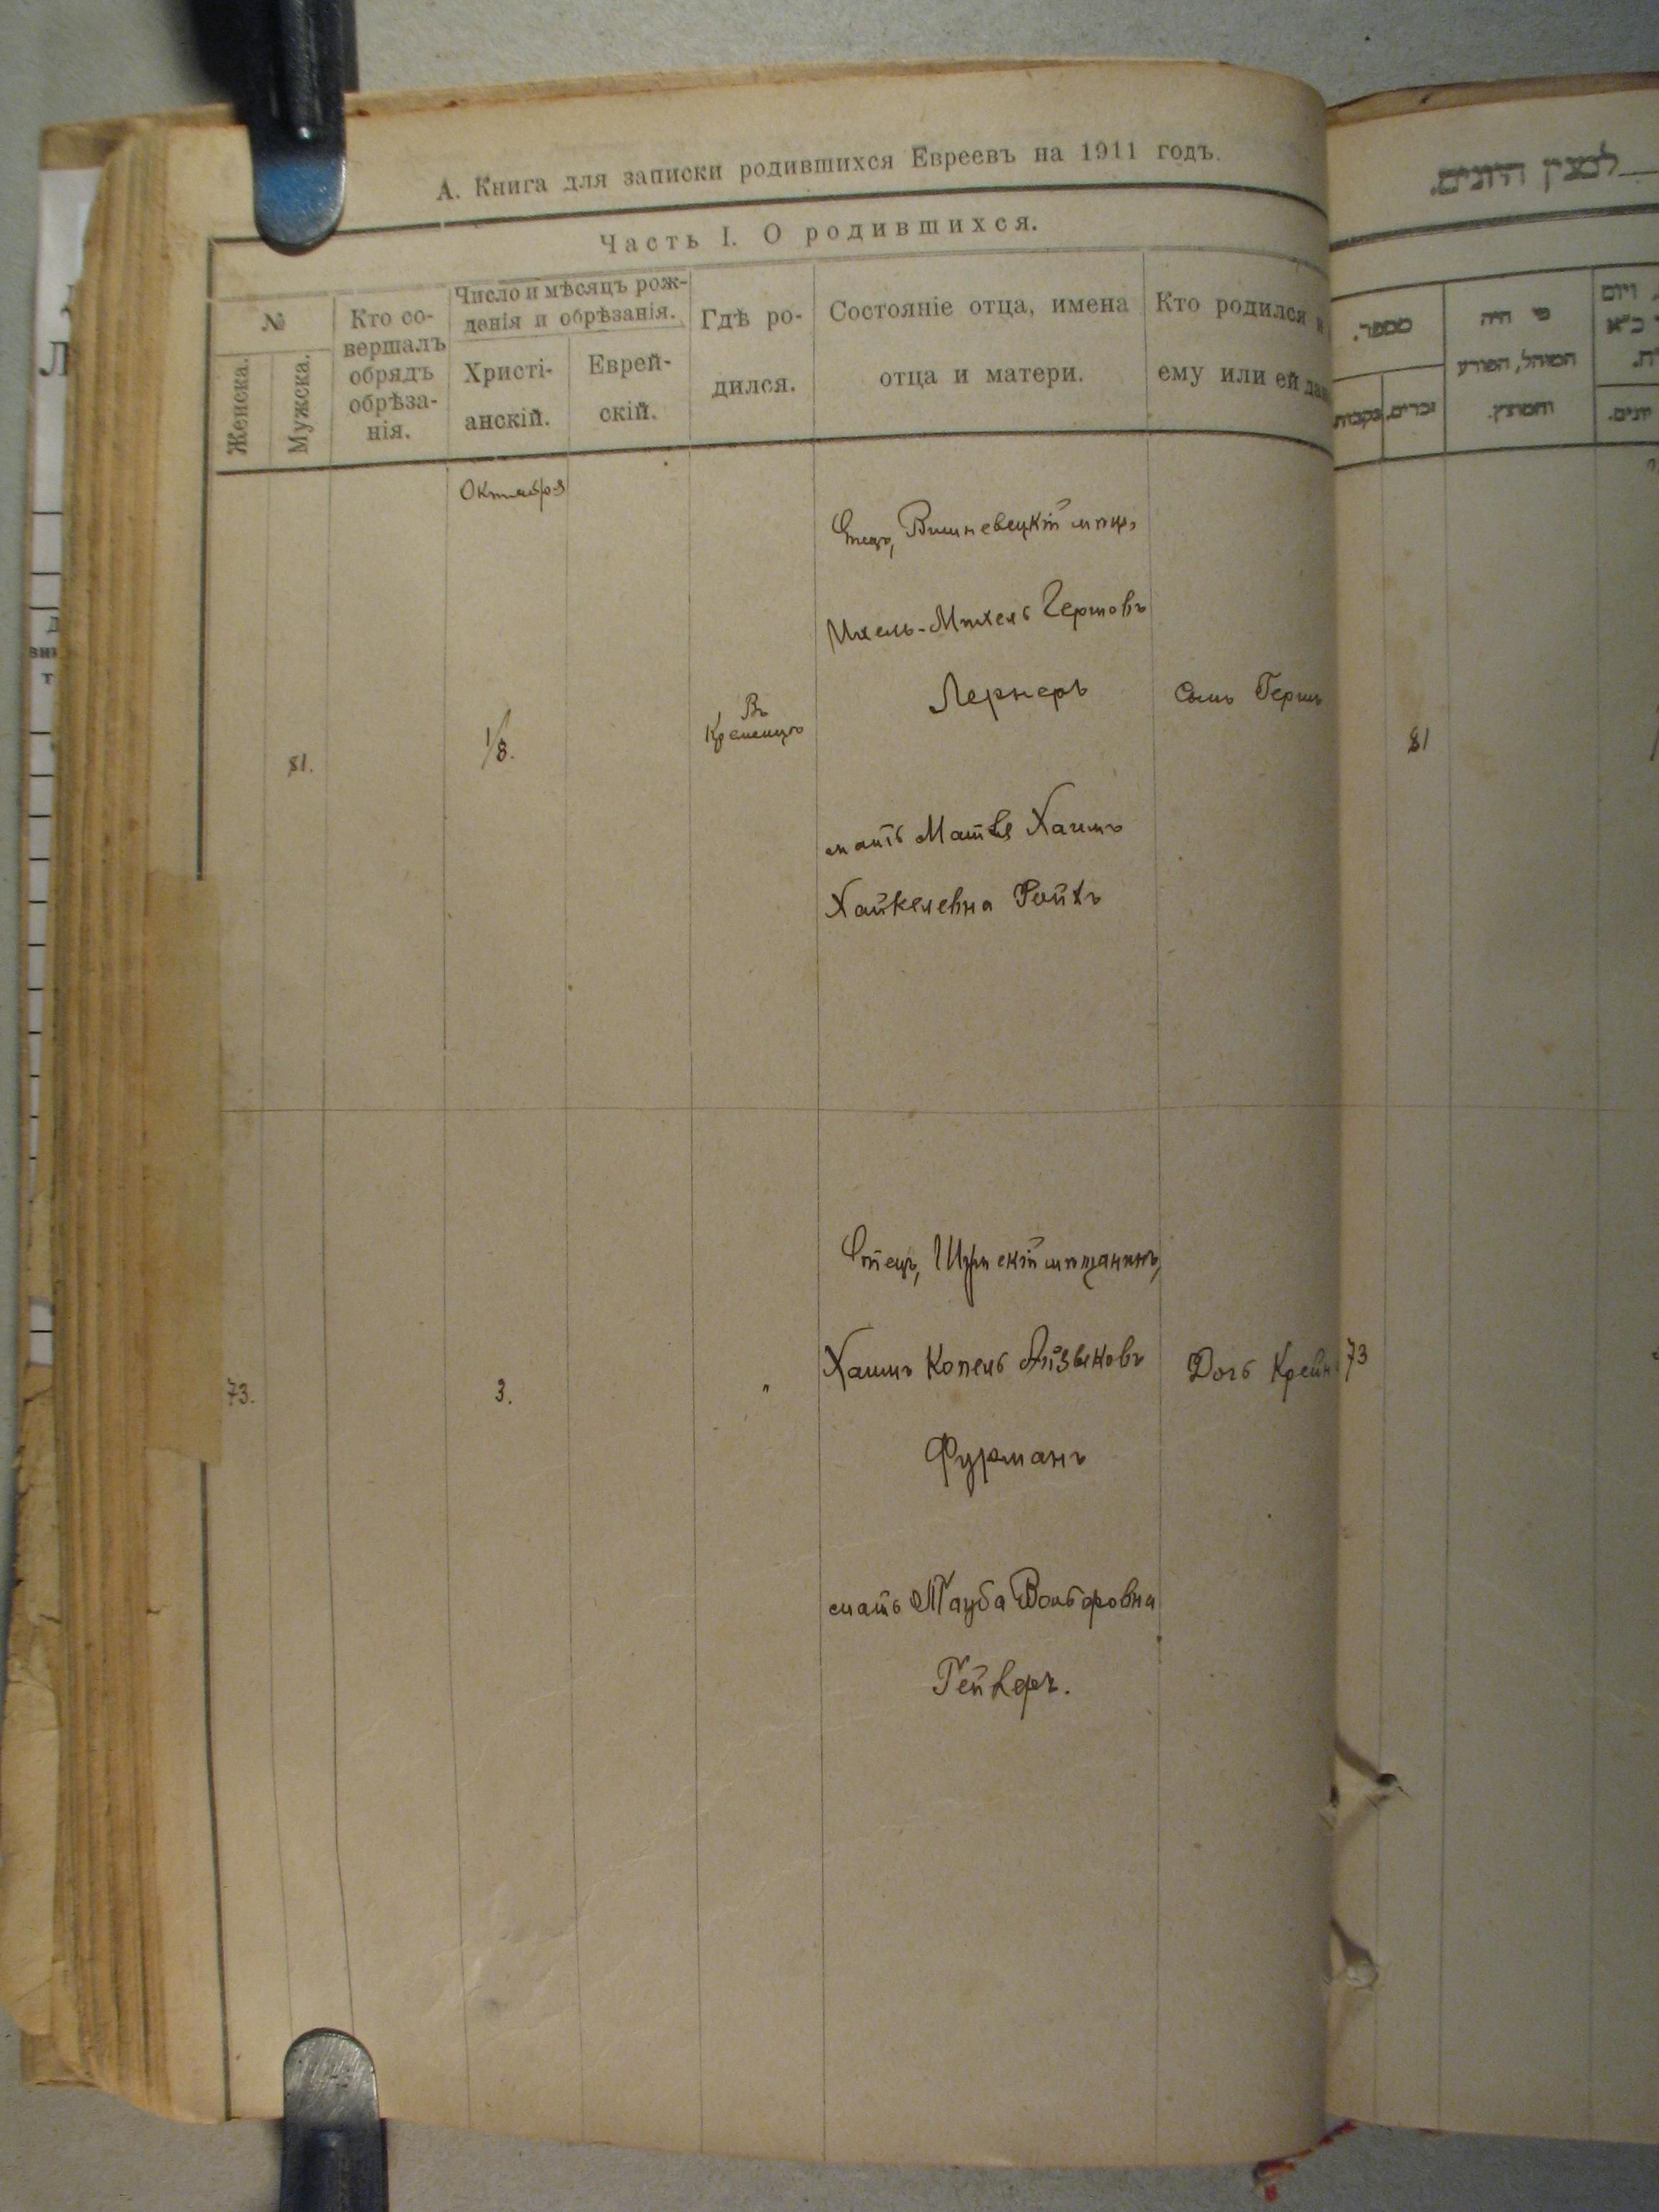 А. Книга для записки родившихся Евреевъ на 1911 годъ.
Часть I. О родившихся.
№
Женска.
Мужска.
Кто со-
вершалъ
обрядъ
обрѣза-
нія.
Число и мѣсяцъ рож-
денія и обрѣзанія.
Христі-
анскій.
Еврей-
скій.
Гдѣ ро-
дился.
Состояніе отца, имена
отца и матери.
Кто родился и
ему или ей дан
Октября
81.
1/8.
Въ
Кременцѣ
Отецъ, Вишневецкій мѣщ.
Ихель-Михель Гершовъ
Лернеръ
мать Матля Хаимъ
Хайкелевна Ройхъ
Сынъ Герш
73.
3.
"
Отецъ, мѣщанинъ,
Хаимъ Копель Айзиковъ
Фурманъ
мать Тауба Вольфовна
Дочь Крейн
מספר.
זכרים.
נקבות
מי היה
המוהל, הפורע
והמוצץ.
81
73